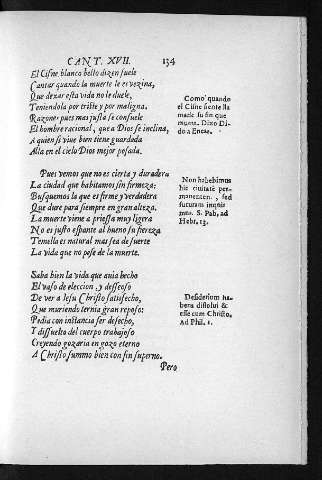 CANT. XVII. 134
El Cisne blanco bello dizen suele
Cantar quando la muerte le es vezina,
Que dexar esta vida no le duele,
Teniendola por triste y por maligna.
Razon es pues mas justo se consuele
El hombre racional, que a Dios se inclina,
A quien si viue bien tiene guardada
Alla en el cielo Dios mejor posada.
Como quando
el Cisne siente lla
marle su fin que
muere. Dixo Di-
do a Eneas.
Pues vemos que no es cierta y duradera
La ciudad que habitamos sin firmeza:
Busquemos la que es firme y verdadera
Que dure para siempre en gran alteza.
La muerte viene a priessa muy ligera
No es justo espante al bueno su fiereza
Temella es natural mas sea de suerte
La vida que no pese de la muerte.
Non habebimus
hic ciuitatē per-
manentem, sed
futuram inquiri
mus. S. Pab. ad
Hebr. 13.
Saba bien la vida que auia hecho
El vaso de eleccion, y desseoso
De ver a Iesu Christo satisfecho,
Que muriendo ternia gran reposo:
Pedia con instancia ser desecho,
Y dissuelto del cuerpo trabajoso
Creyendo gozaria en gozo eterno
A Christo summo bien con fin superno.
Desiderium ha-
bens dissolui &
esse cum Christo.
Ad Phil. 1.
Pero